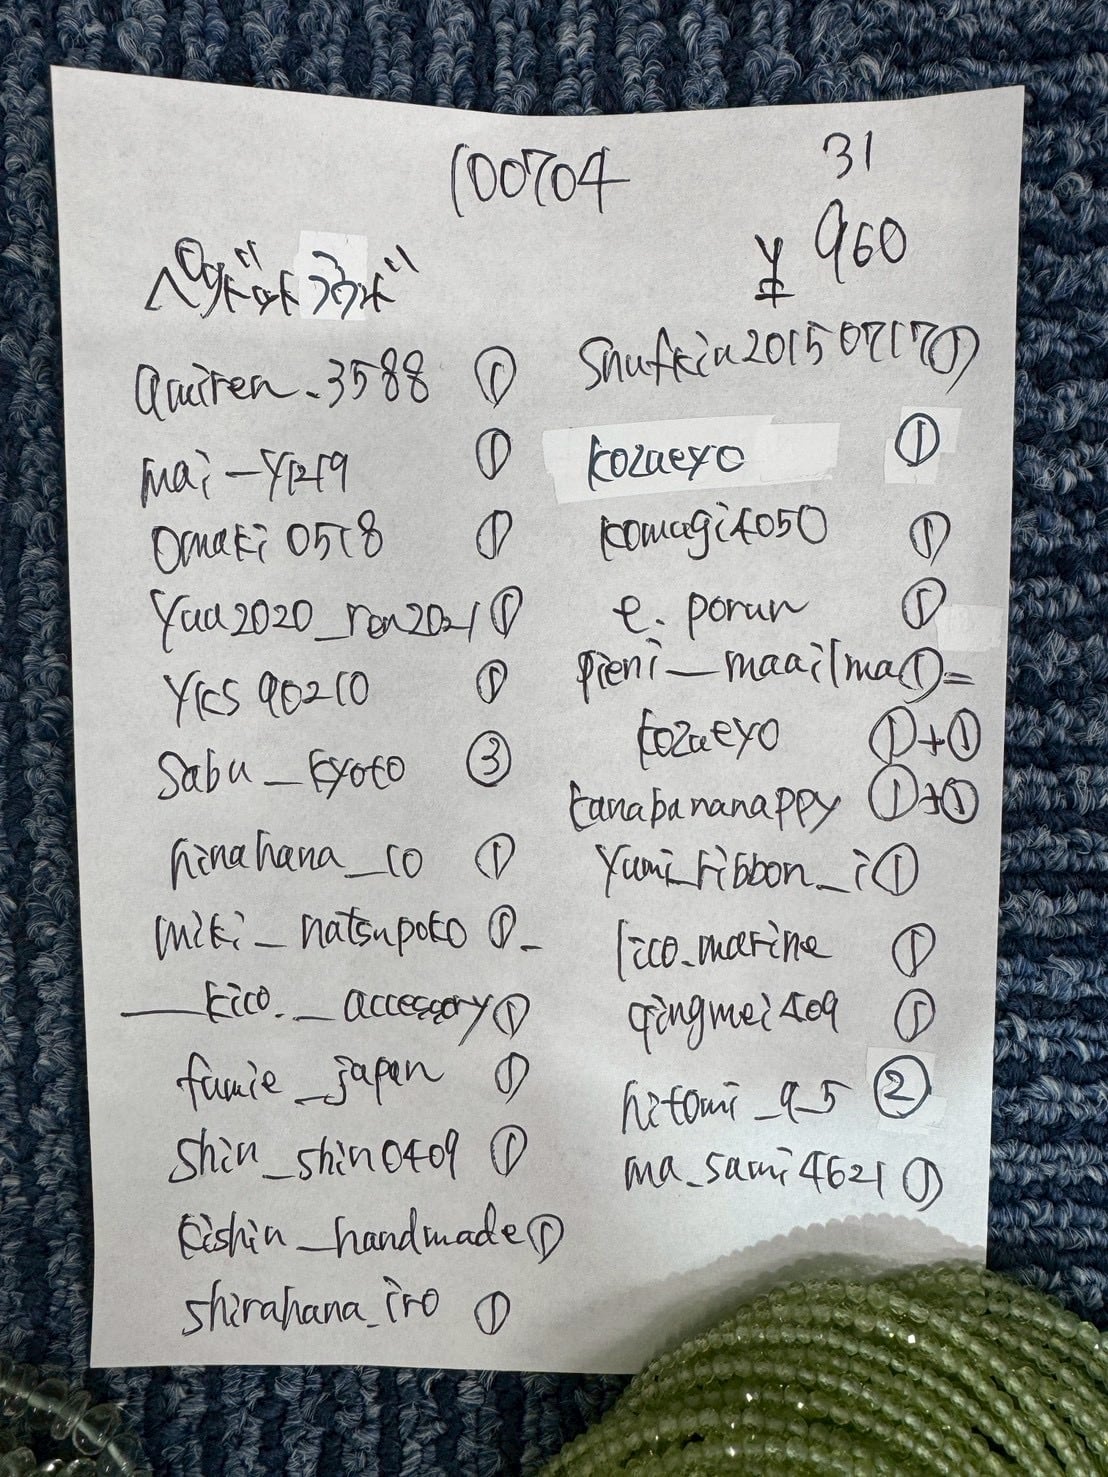 100704
31
¥ 960
amiren_3588 ①
mai_yk219 ①
omaki0518 ①
yaa2020_ren2021 ①
yks90210 ①
sabu_kyoto ③
hinahana_co ①
miki_natsupoko ①
__kico._accessory ①
fumie_japan ①
shin_shin0409 ①
kishin_handmade ①
shirahana_iro ①
Snufkin20150717 ①
kozaeyo ①
komagi4050 ①
e.porun ①
pieni_maailma ①=
kozaeyo ①+①
kanabananappy ①+①
yumi_ribbon_i ①
lico.marine ①
qingmei409 ①
hitomi_9_5 ②
ma_sami4621 ①